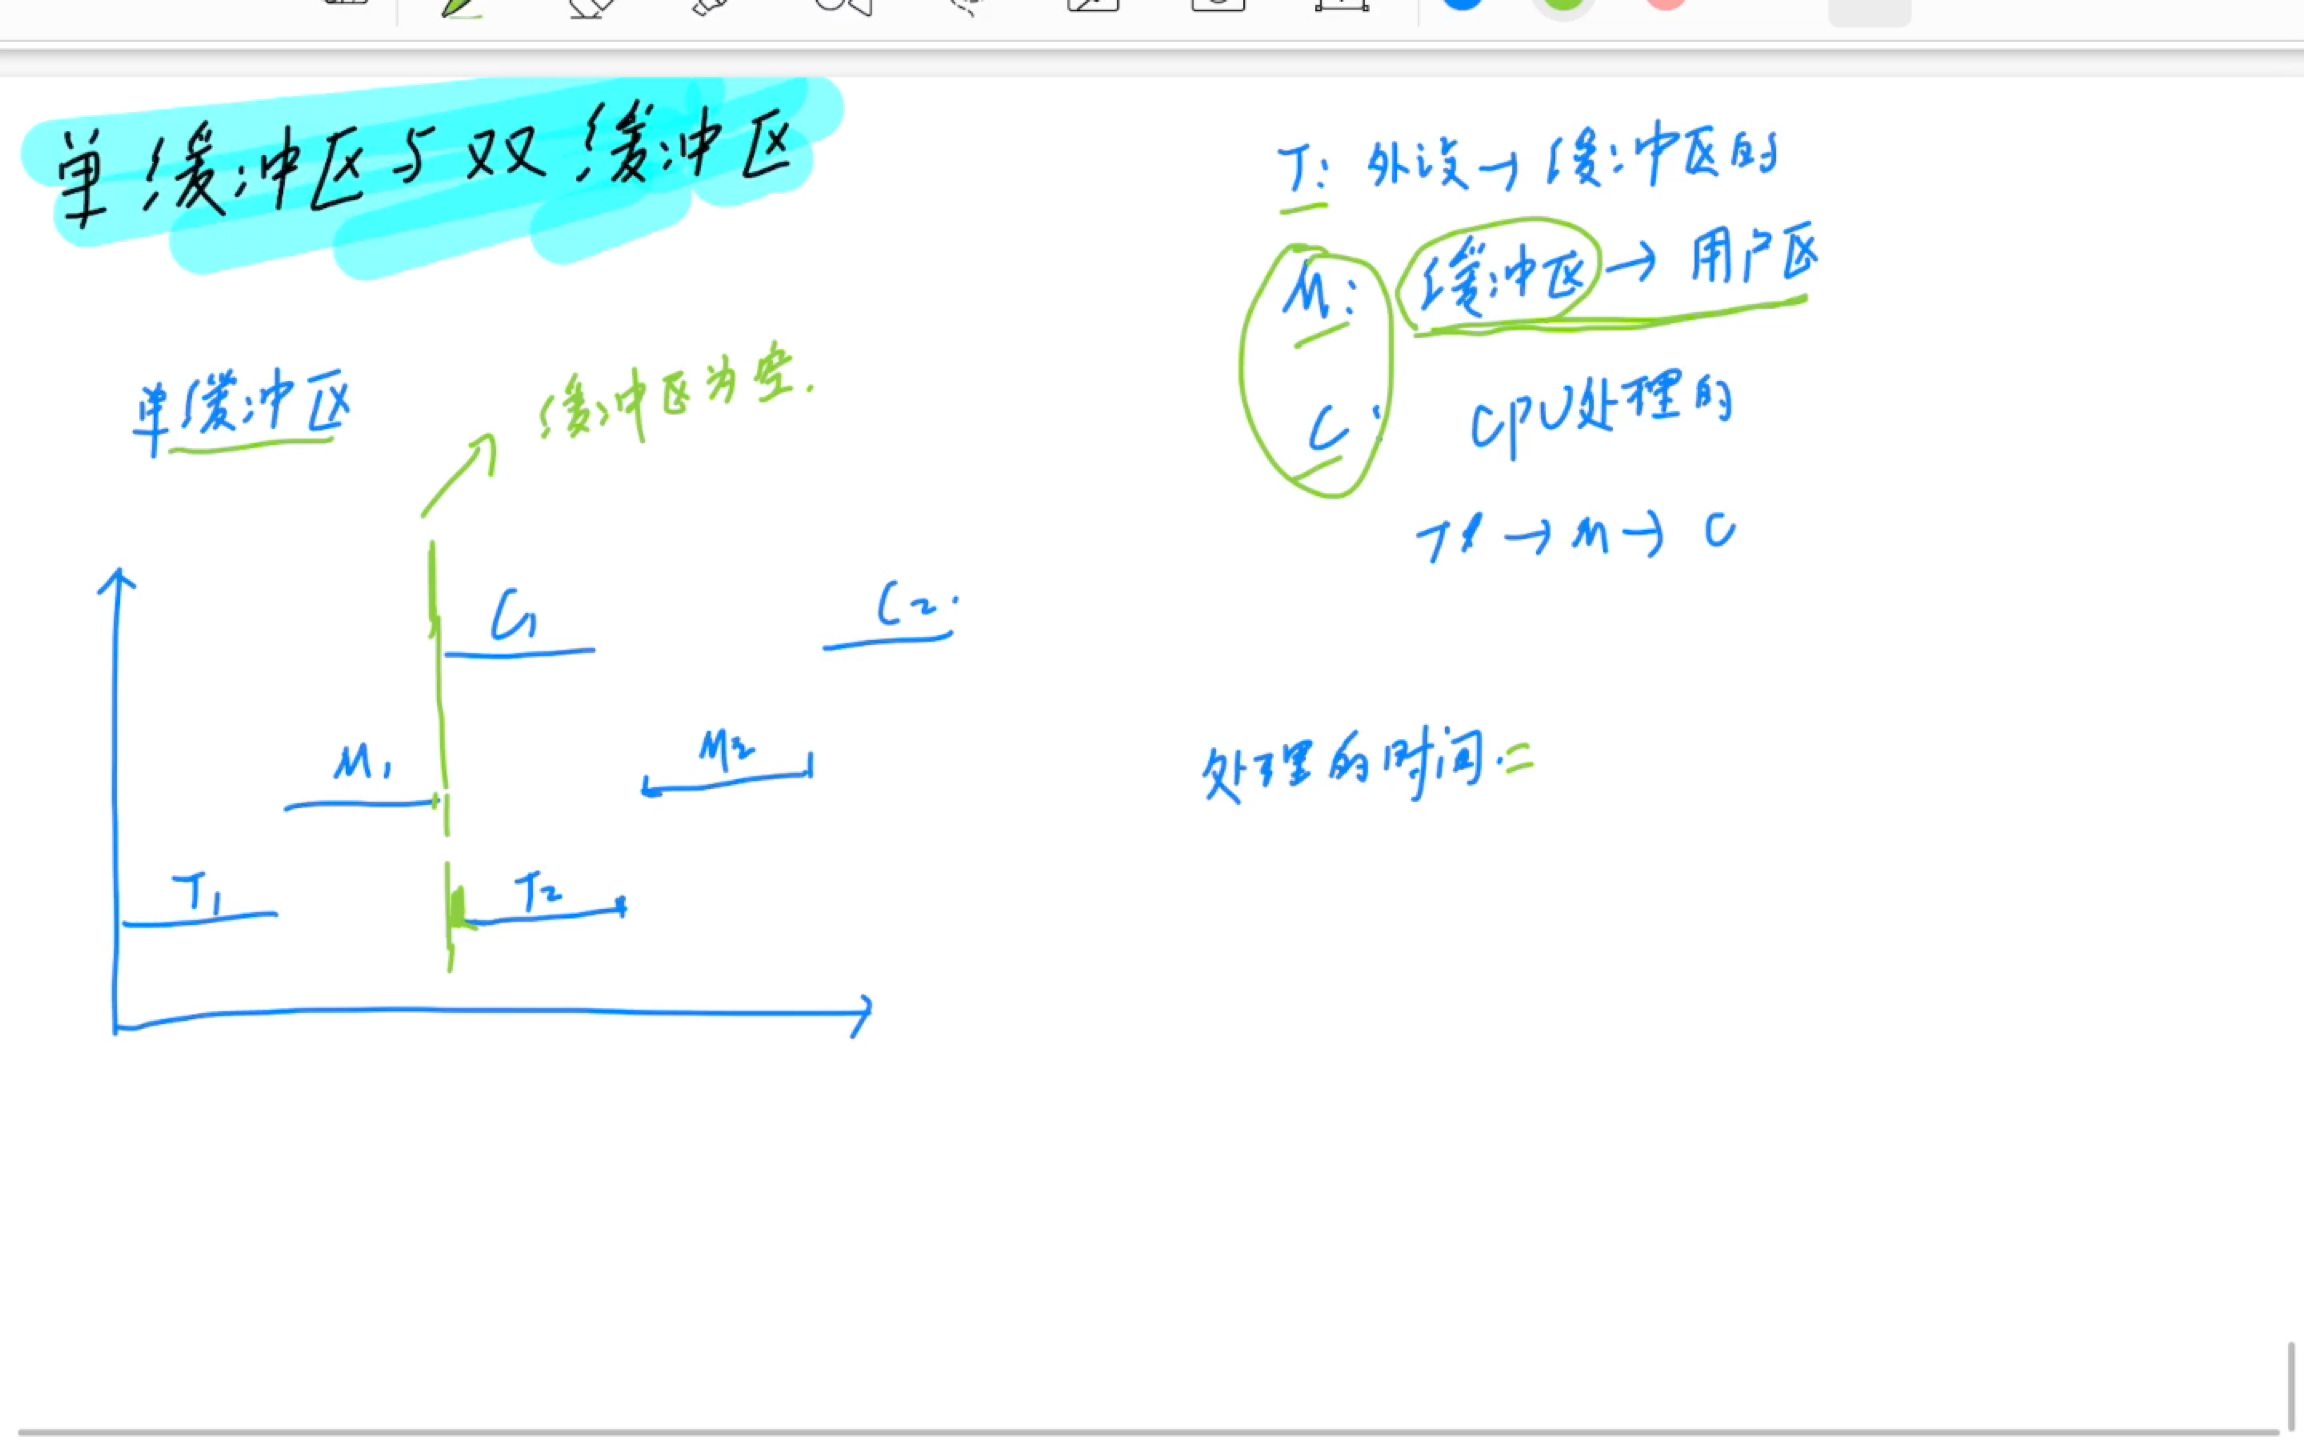 单缓冲区与双缓冲区
T: 外设→缓冲区的
M: 缓冲区→用户区
C: CPU处理的
T→M→C
单缓冲区
缓冲区为空.
C1
C2.
M1
M2
T1
T2
处理的时间:=